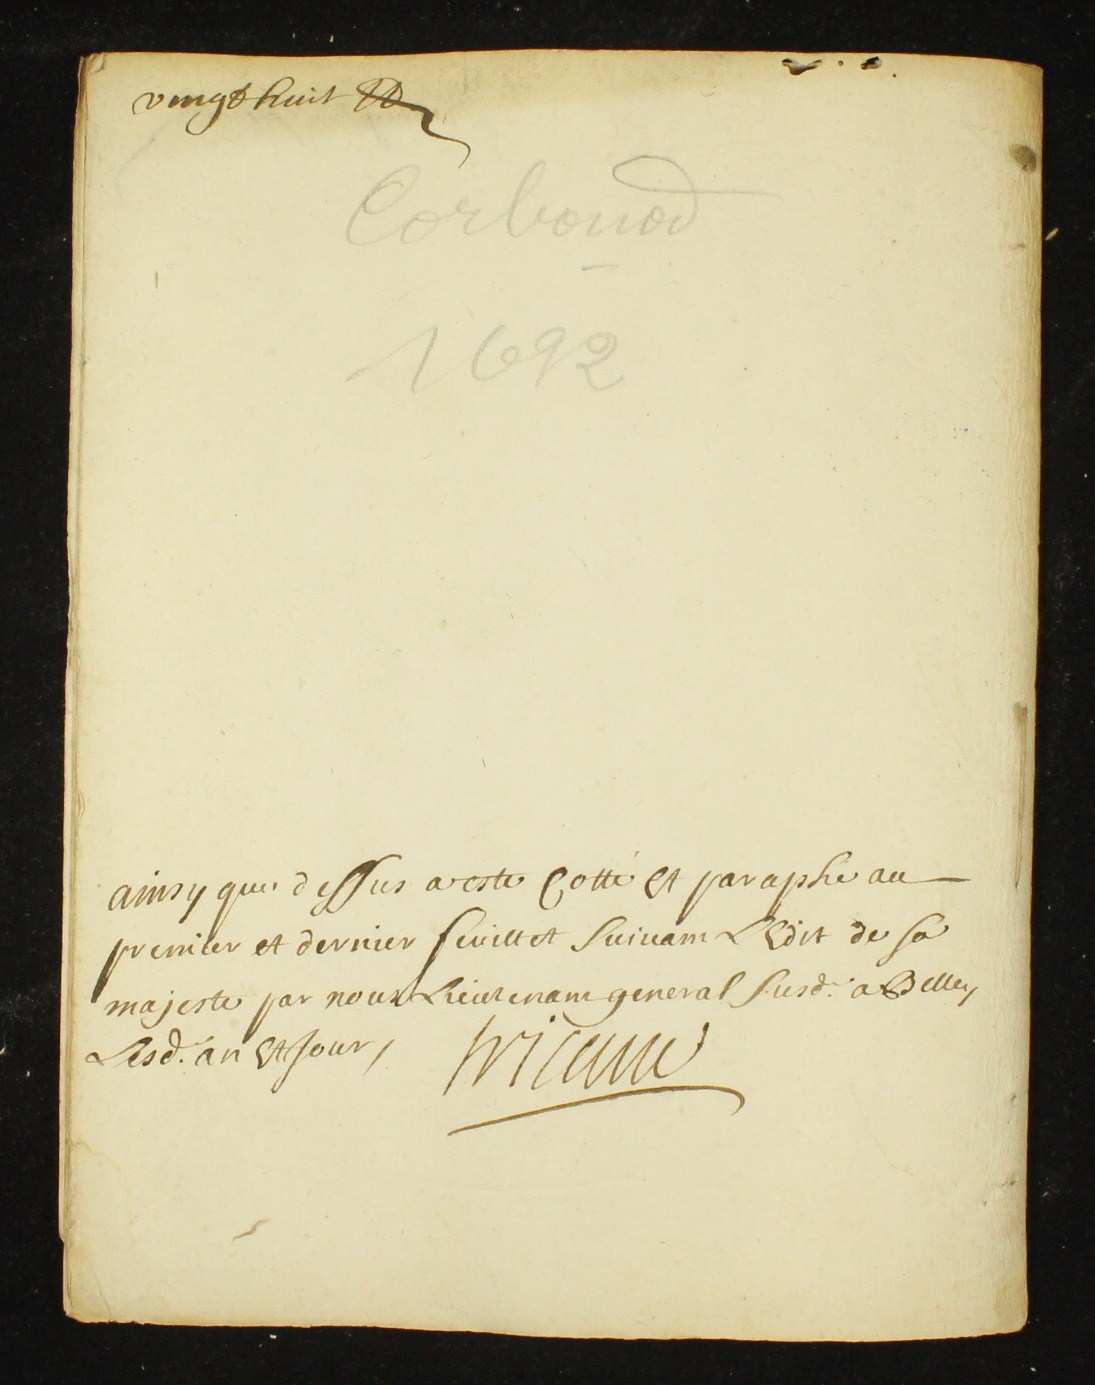 vingt huit
Corbonod
1692
ainsy que dessus a esté Cotté Et paraphé au
premier et dernier feuillet Suivant L'Edit de Sa
majesté par nous Lieutenant general Susd. a Belley
Lesd. an Et Jour,